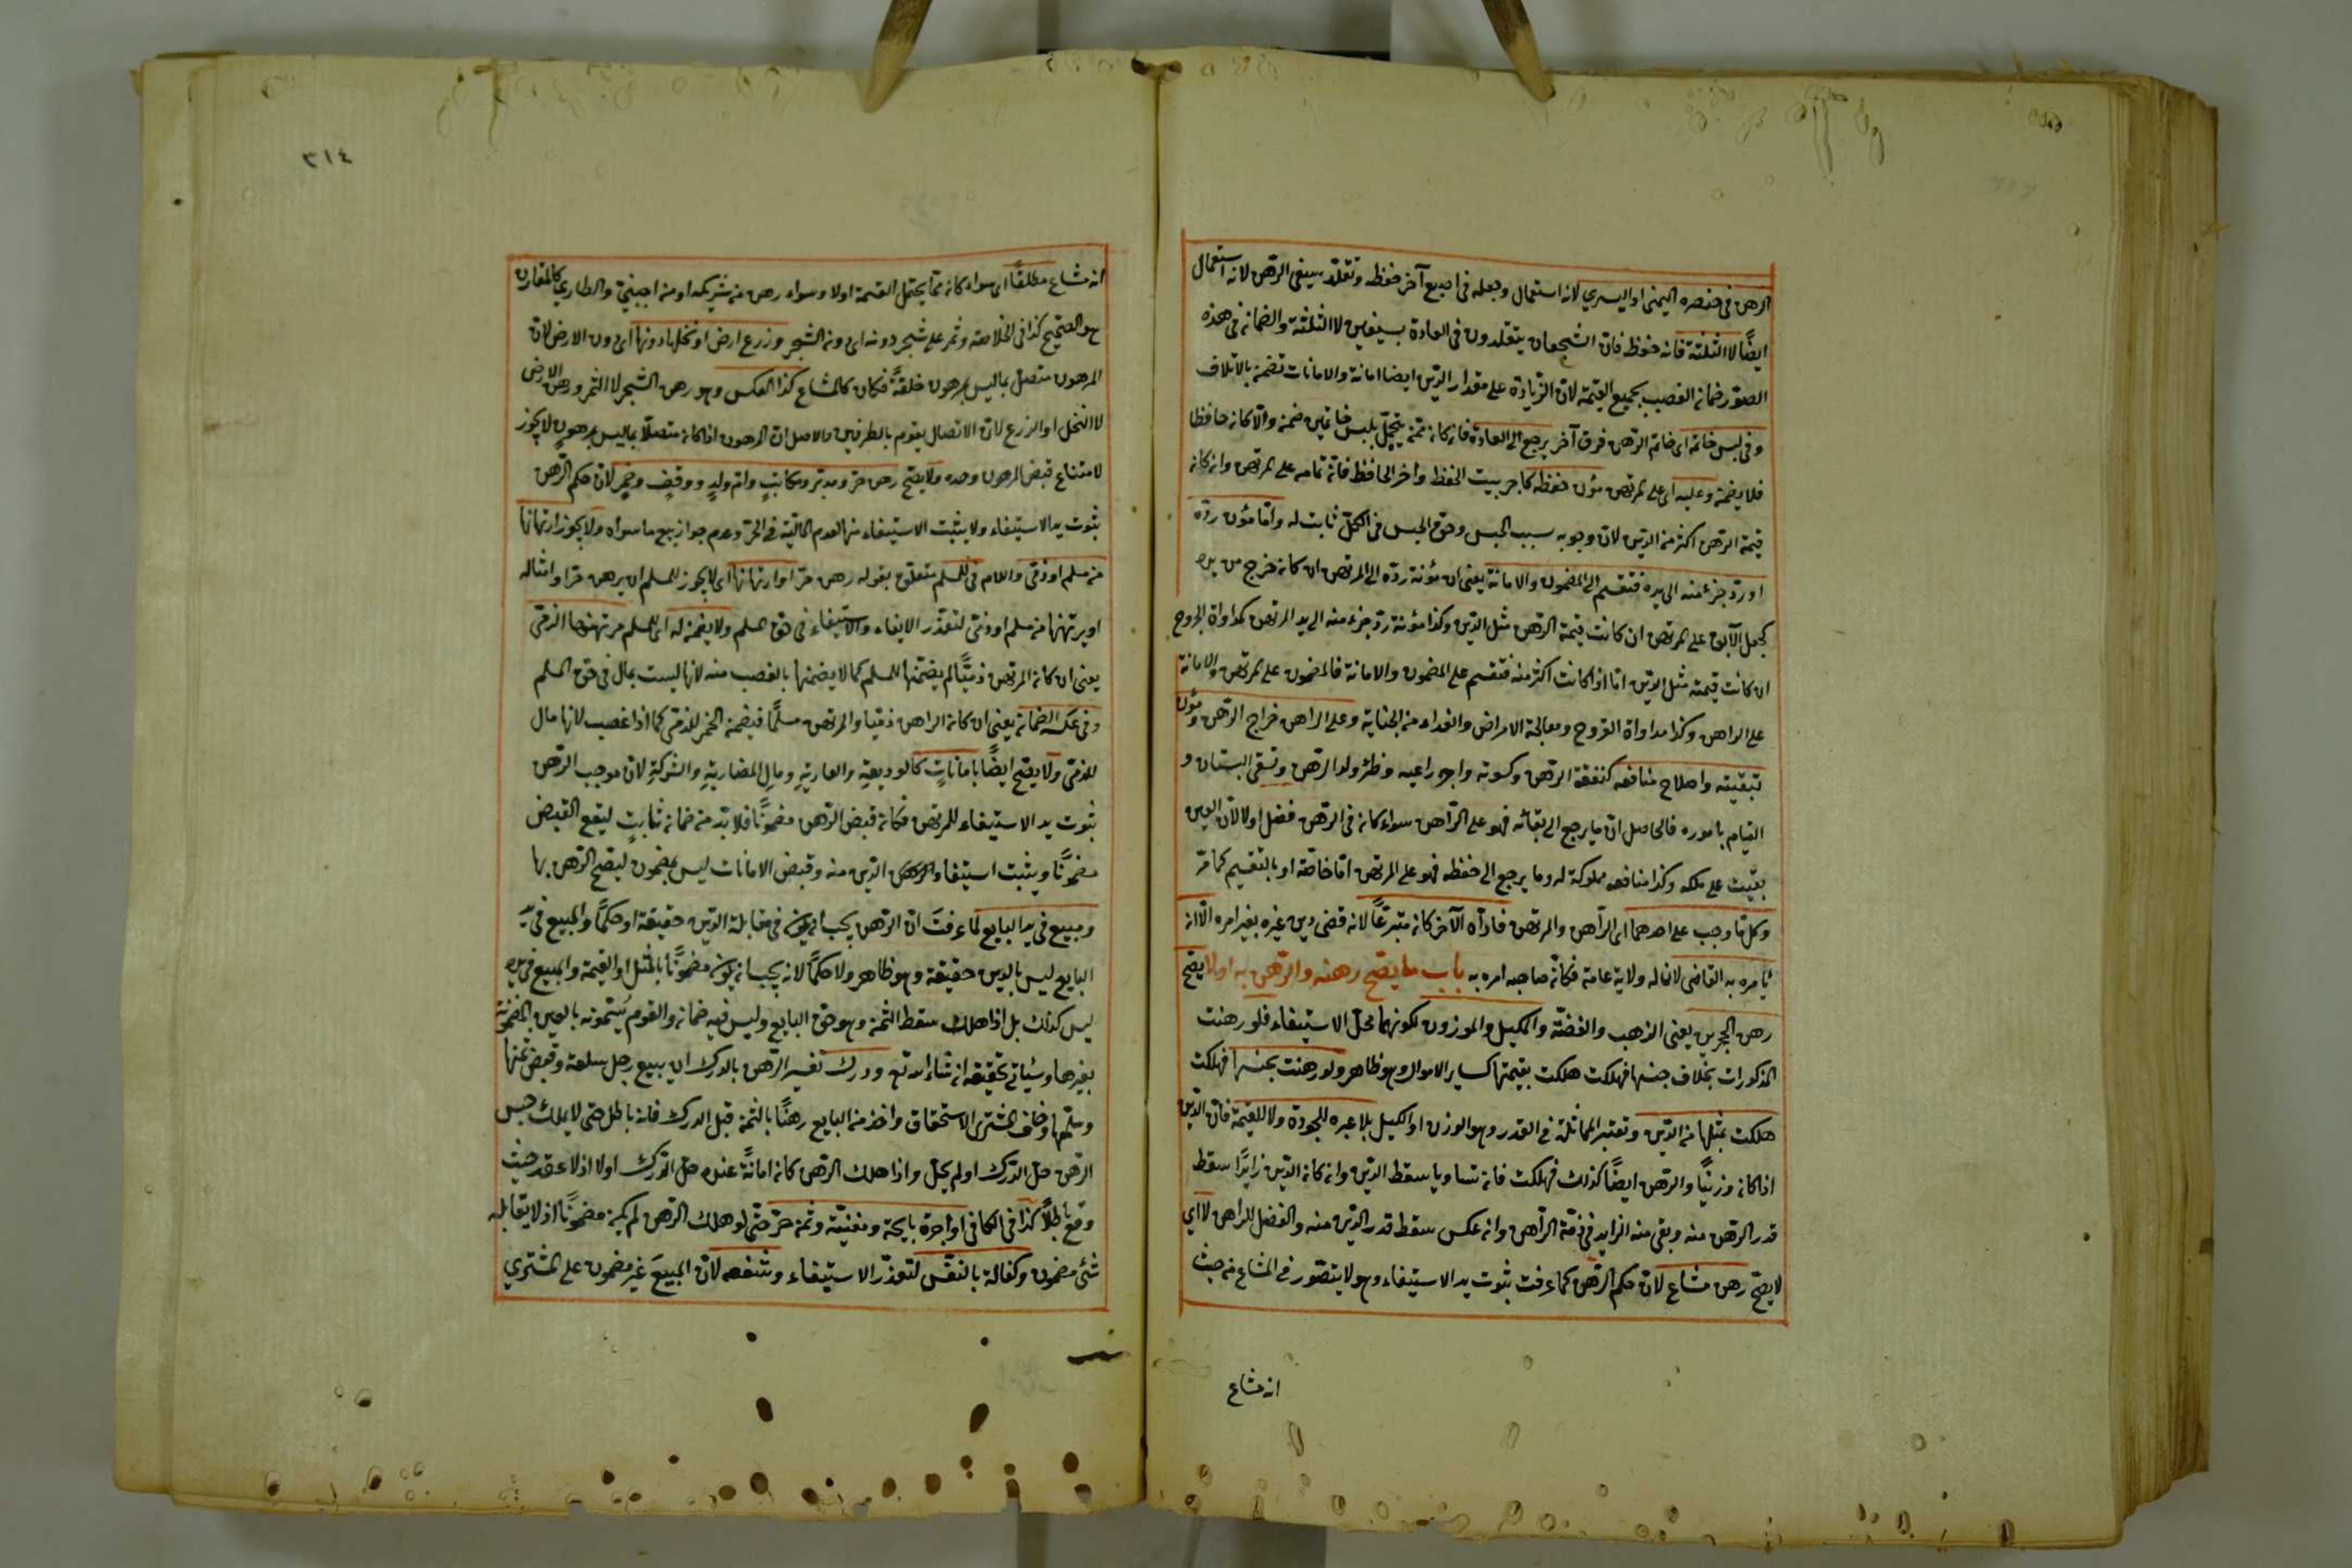 الرهن في خنصره اليمنى او اليسرى لانه استعمال وجعله في اصبع آخر حفظ وتقلد سيفى الرهن لانه استعمال
ايضًا لا الثلثة فانه حفظ فان الشجعان يتقلدون في العادة بسيفين لا الثلثة والضمان في هذه
الصور ضمان الغصب بجميع القيمة لان الزيادة على مقدار الدين ايضا امانة والامانات تضمن بالاتلاف
وفي لبس خاتمه اى خاتم الرهن فوق آخر يرجع الى العادة فان كان ممن يتجمل بلبس خاتمين ضمن والا كان حافظا
فلا يضمن وعليه اى على المرتهن مؤن حفظه كاجر بيت الحفظ واجر الحافظ فانه تمامه على المرتهن وان كان
قيمة الرهن اكثر من الدين لان وجوبه سبب الحبس وحق الحبس في الكل ثابت له واما مؤن رده
او رد جزء منه الى يده فتنقسم الى المضمون والامانة يعنى ان مؤنة رده الى المرتهن ان كان خرج من يده
كجعل الآبق على المرتهن ان كانت قيمة الرهن مثل الدين وكذا مؤنة رد جزء منه الى يد المرتهن كمداواة الجروح
ان كانت قيمته مثل الدين اما اذا كانت اكثر منه فتقسم على المضمون والامانة فالمضمون على المرتهن والامانة
على الراهن وكذا مداواة القروح ومعالجة الامراض والفداء من الجناية وعلى الراهن خراج الرهن ومؤن
تبقيته واصلاح منافعه كنفقة الرهن وكسوته واجر راعيه وظئر ولد الرهن وسقى البستان و
القيام باموره فالحاصل ان ما يرجع الى بقائه فهو على الراهن سواء كان في الرهن فضل اولا لان العين
بقيت على ملكه وكذا منافعه مملوكة له وما يرجع الى حفظه فهو على المرتهن اما خاصة او بالتقسيم كما مر
وكل ما وجب على احدهما اى الراهن والمرتهن فاداه الآخر كان متبرعًا لانه قضى دين غيره بغير امره الا ان
يأمره به القاضى لان له ولاية عامة فكأن صاحبه امره به باب ما يصح رهنه والرهن به او لا يصح
رهن الحجرين يعنى الذهب والفضة والمكيل والموزون لكونها محل الاستيفاء فلو رهنت
المذكورات بخلاف جنسها فهلكت هلكت بقيمتها كساير الاموال وهو ظاهر ولو رهنت بجنسها فهلكت
هلكت بمثلها من الدين وتعتبر المماثلة في القدر وهو الوزن او الكيل بلا عبرة للجودة ولا للقيمة فان الدين
اذا كان وزنيًا والرهن ايضًا كذلك فهلكت فان تساويا سقط الدين وان كان الدين زايدًا سقط
قدر الرهن منه وبقى منه الزايد في ذمة الراهن وان عكس سقط قدر الدين منه والفضل للراهن لا اى
لا يصح رهن مشاع لان حكم الرهن كما عرفت ثبوت يد الاستيفاء وهو لا يتصور في المشاع من حيث
انه مشاع
٣١٤
انه مشاع مطلقًا اى سواء كان مما يحتمل القسمة اولا وسواء رهن من شريكه او من اجنبي والطارى كالمقارن
هو الصحيح كذا في الخلاصة وثمر على شجر دونه اى دون الشجر وزرع ارض او نخلها دونها اى دون الارض لان
المرهون متصل بما ليس بمرهون خلقةً فكان كالمشاع كذا العكس وهو رهن الشجر لا الثمر ورهن الارض
لا النخل او الزرع لان الاتصال يقوم بالطرفين والاصل ان المرهون اذا كان متصلًا بما ليس بمرهون لا يجوز
لامتناع قبض المرهون وحده ولا يصح رهن حر ومدبر ومكاتب وام ولد ووقف وخمر لان حكم الرهن
ثبوت يد الاستيفاء ولا يثبت الاستيفاء منها لعدم المالية في الحر وعدم جواز بيع ما سواه ولا يجوز ارتهانها
من مسلم او ذمى واللام في للمسلم متعلق بقوله رهن حر او ارتهانها اى لا يجوز للمسلم ان يرهن حرا وامثاله
او يرتهنها من مسلم او ذمى لتعذر الايفاء والاستيفاء في حق المسلم ولا يضمن له اى للمسلم مرتهنها الذمى
يعنى ان كان المرتهن ذميًا لم يضمنها للمسلم كما لا يضمنها بالغصب منه لانها ليست بمال في حق المسلم
وفي عكسه الضمان يعنى ان كان الراهن ذميا والمرتهن مسلمًا فيضمن الخمر للذمى كما اذا غصب لانها مال
للذمى ولا يصح ايضًا بامانات كالوديعة والعارية ومال المضاربة والشركة لان موجب الرهن
ثبوت يد الاستيفاء للمرتهن فكان قبض الرهن مضمونًا فلا بد من ضمان ثابت ليقع القبض
مضمونًا ويثبت استيفاء الدين منه وقبض الامانات ليس بمضمون ليصح الرهن بها
ومبيع في يد البايع لما عرفت ان الرهن يجب ان يكون في مقابلة الدين حقيقة او حكمًا والمبيع في يد
البايع ليس بالدين حقيقة وهو ظاهر ولا حكمًا لانه يجب ان يكون مضمونًا بالمثل او القيمة والمبيع في يده
ليس كذلك بل اذا هلك سقط الثمن وهو حق البايع وليس فيه ضمان والقوم يسمونه بالعين المضمونة
بغيرها وسيأتي تحقيقه ان شاء الله تع ودرك تفسير الرهن بالدرك ان يبيع رجل سلعة وقبض ثمنها
وسلمها وخاف المشترى الاستحقاق واخذ من البايع رهنًا بالثمن قبل الدرك فانه باطل حتى لا يملك حبس
الرهن حل الدرك او لم يحل واذا هلك الرهن كان امانةً عنده حل الدرك اولا اذ لا عقد حيث
وقع باطلًا كذا في الكافي او اجرة نايحة ومغنية وثمن حر حتى لو هلك الرهن لم يكن مضمونًا اذ لا يقابله
شئ مضمون وكفالة بالنفس لتعذر الاستيفاء وشفعه لان المبيع غير مضمون على المشترى